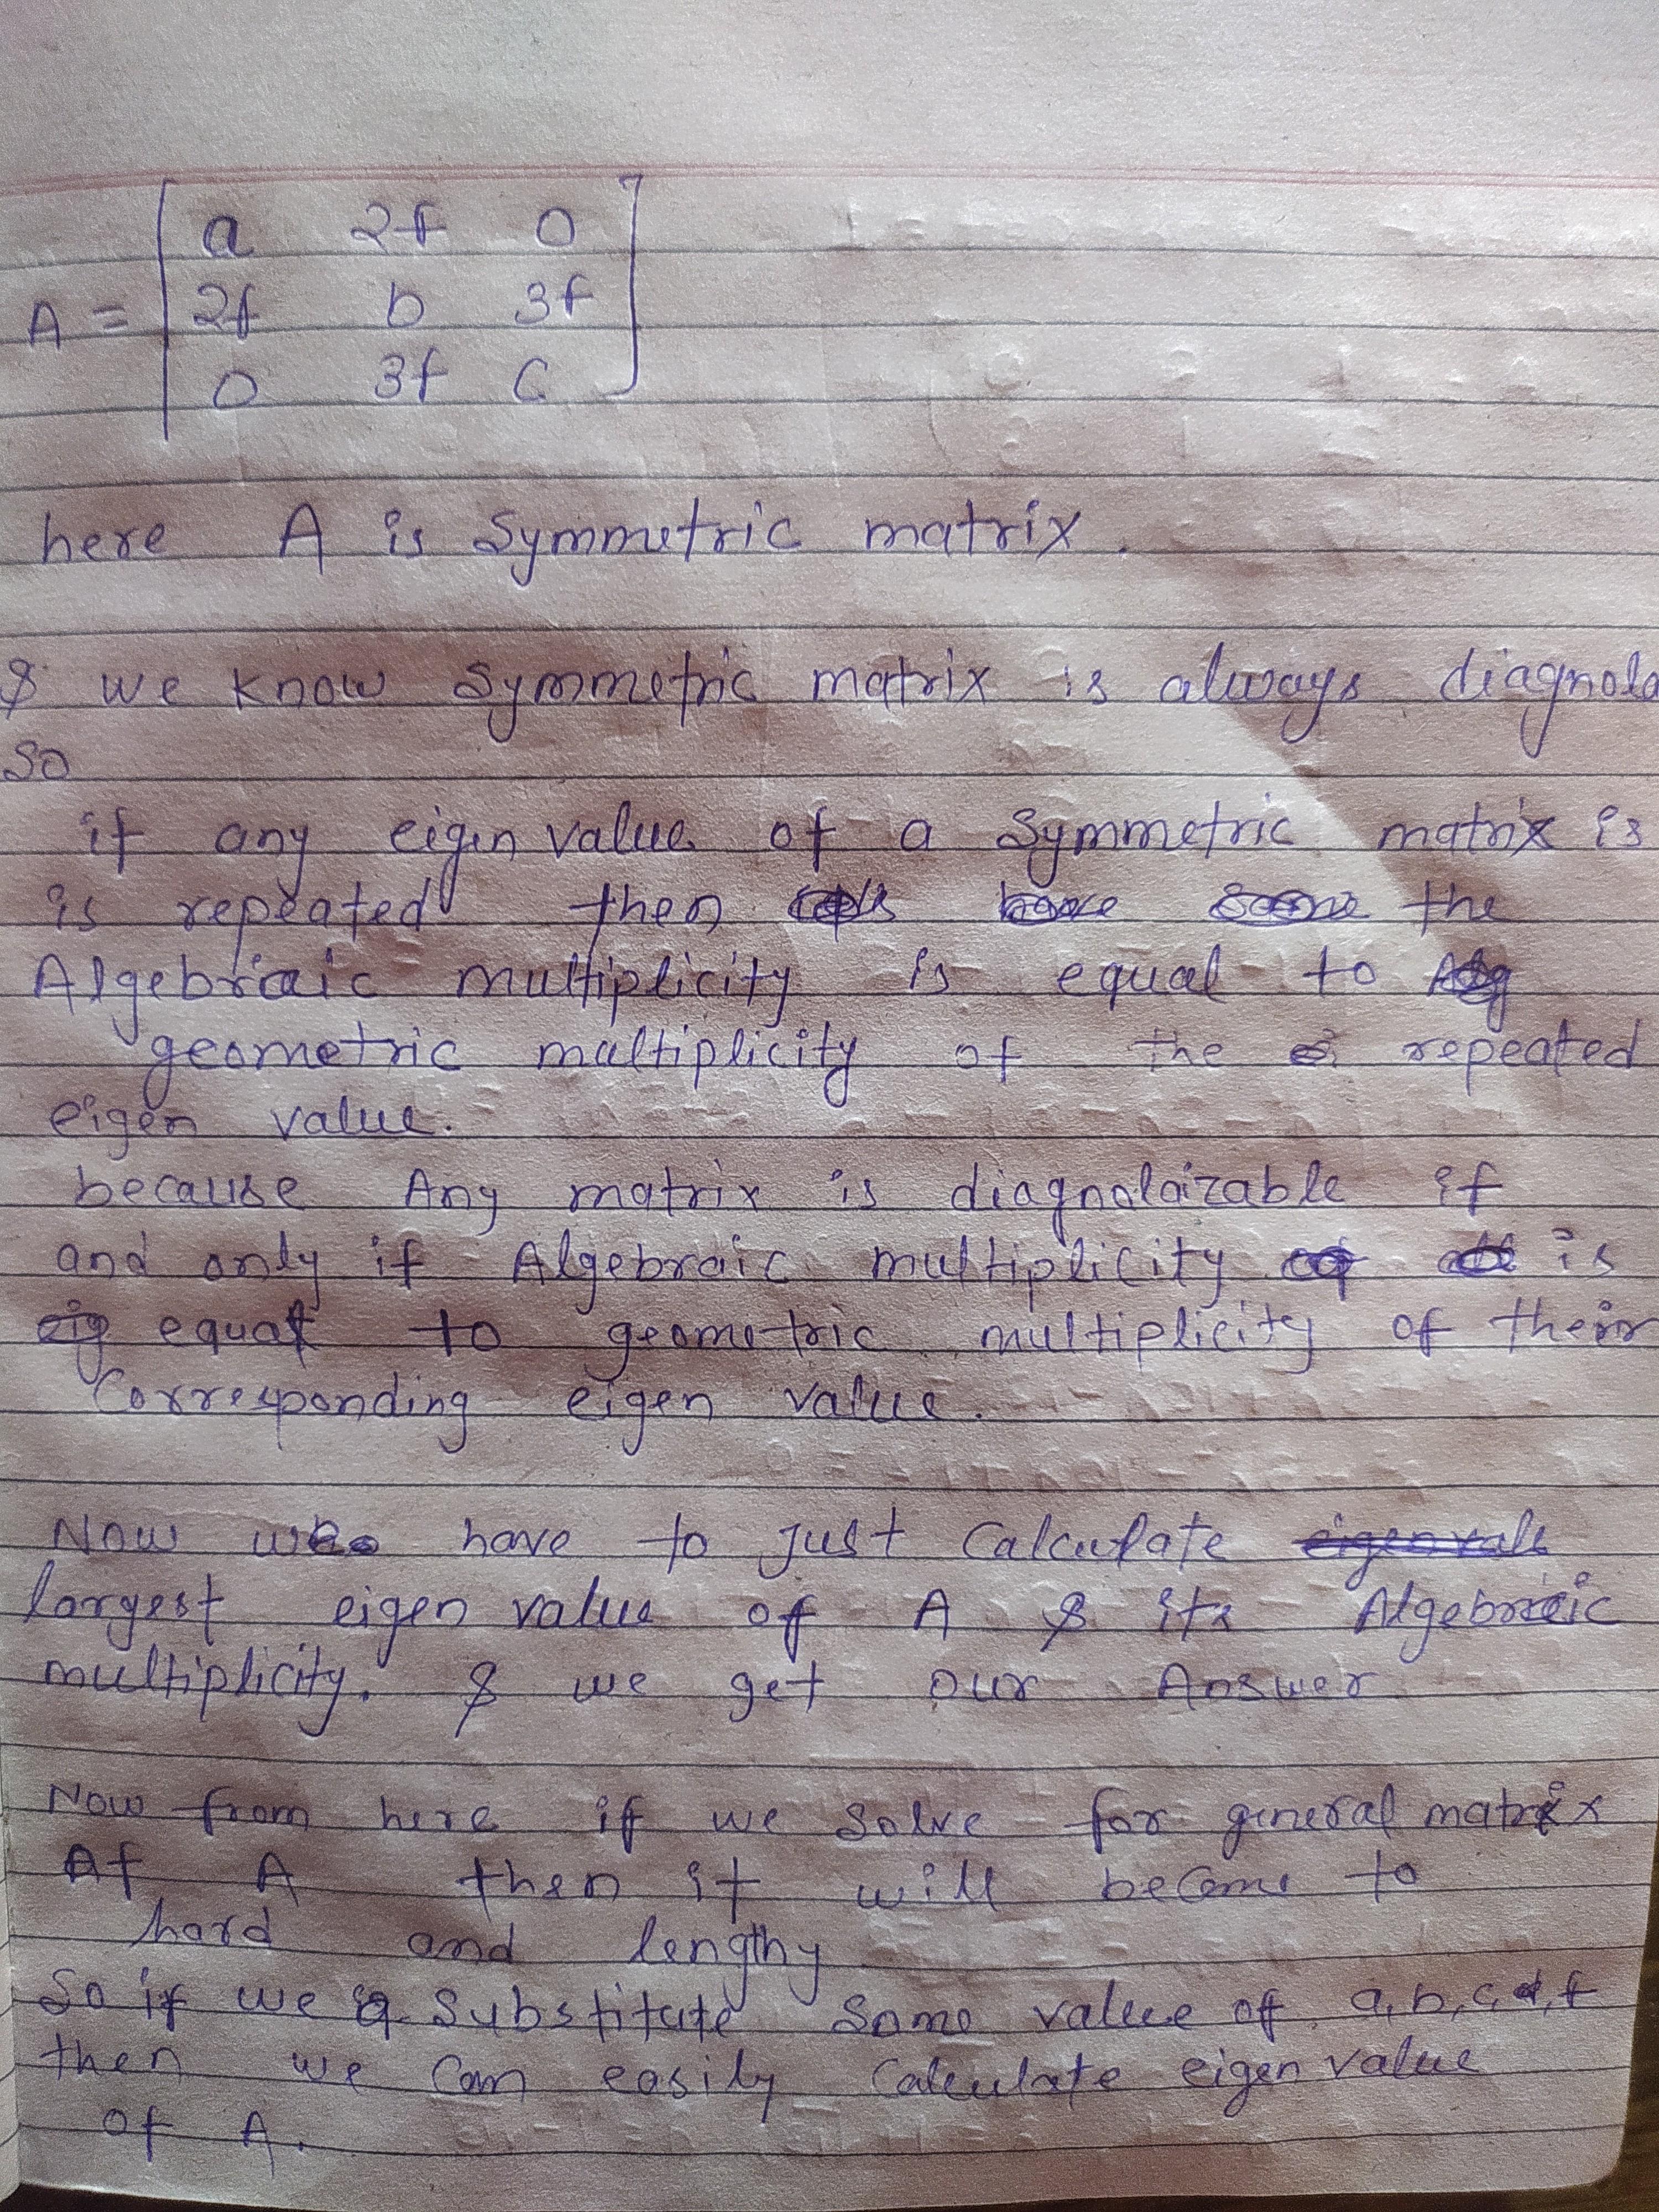 A = [ a 2f 0
2f b 3f
0 3f c ]
here A is Symmetric matrix.
& we know Symmetric matrix is always diagnola
so
if any eigen value of a Symmetric matrix is
is repeated then the
Algebraic multiplicity is equal to
geometric multiplicity of the repeated
eigen value.
because Any matrix is diagnolaizable if
and only if Algebraic multiplicity is
equal to geometric multiplicity of their
Corresponding eigen value.
Now we have to just Calculate
largest eigen value of A & its Algebraic
multiplicity. & we get our Answer
Now from here if we solve for general matrix
Af A then it will become to
hard and lengthy
So if we Substitute some value of a, b, c, f
then we can easily Calculate eigen value
of A.